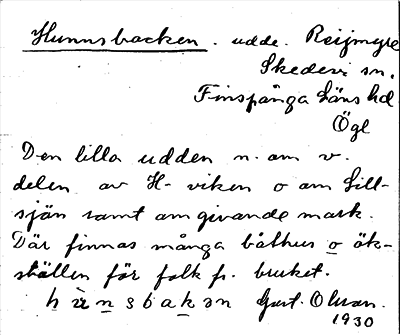 Hunnsbacken. udde. Reijmyre
Skedevi sn.
Finspånga Läns hd
Ögl
Den lilla udden n. om v.
delen av H- viken o om Lill-
sjön samt omgivande mark.
Där finnas många båthus o ök-
ställen för folk fr. bruket.
Gust. Olsson.
1930